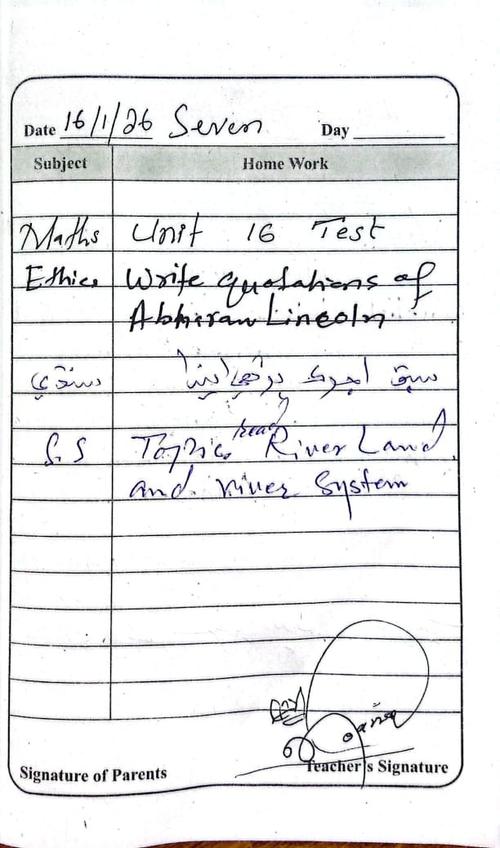 Date 16/1/26 Seven Day
Subject Home Work
Maths Unit 16 Test
Ethics Write quotations of
Abhiraw Lincoln
سنڌي سبق اجرڪ
S.S Topic read River Land
and river System
Signature of Parents Teacher's Signature